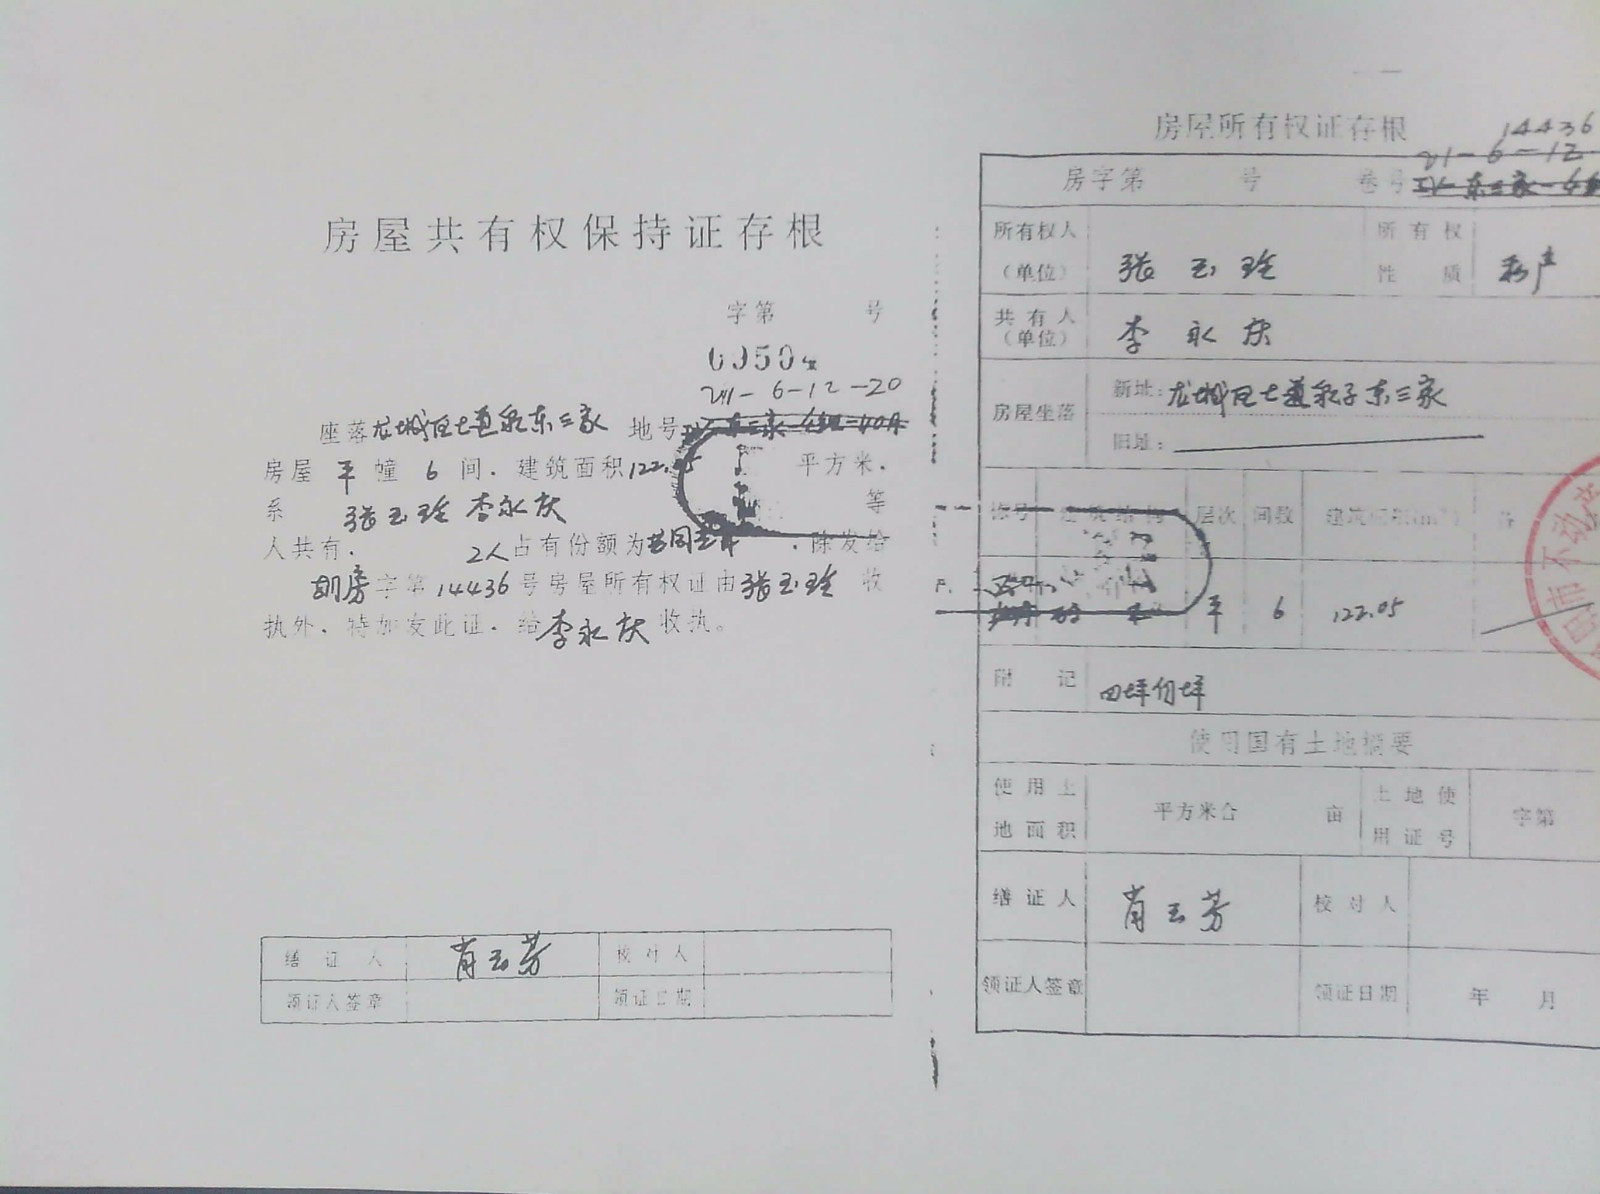 房屋共有权保持证存根
字第 号
21-6-12-20
座落龙城区七道泉东三家 地号
房屋 平 幢 6 间.建筑面积122.05 平方米.
系 张玉玲 李永庆 等
人共有. 2人占有份额为共同 .除发给
朝房字第14436号房屋所有权证由张玉玲收
执外.特加发此证.给李永庆收执。
缮证人 肖玉芳 校对人
领证人签章 领证日期
房屋所有权证存根
14436
21-6-12
房字第 号 卷号
所有权人(单位) 张玉玲 所有权性质 私产
共有人(单位) 李永庆
房屋坐落 新址:龙城区七道泉子东三家
旧址:
栋号 建筑结构 层次 间数 建筑面积(m²)
平 6 122.05
附记
使用国有土地摘要
使用土地面积 平方米合 亩 土地使用证号 字第
缮证人 肖玉芳 校对人
领证人签章 领证日期 年 月
市不动产